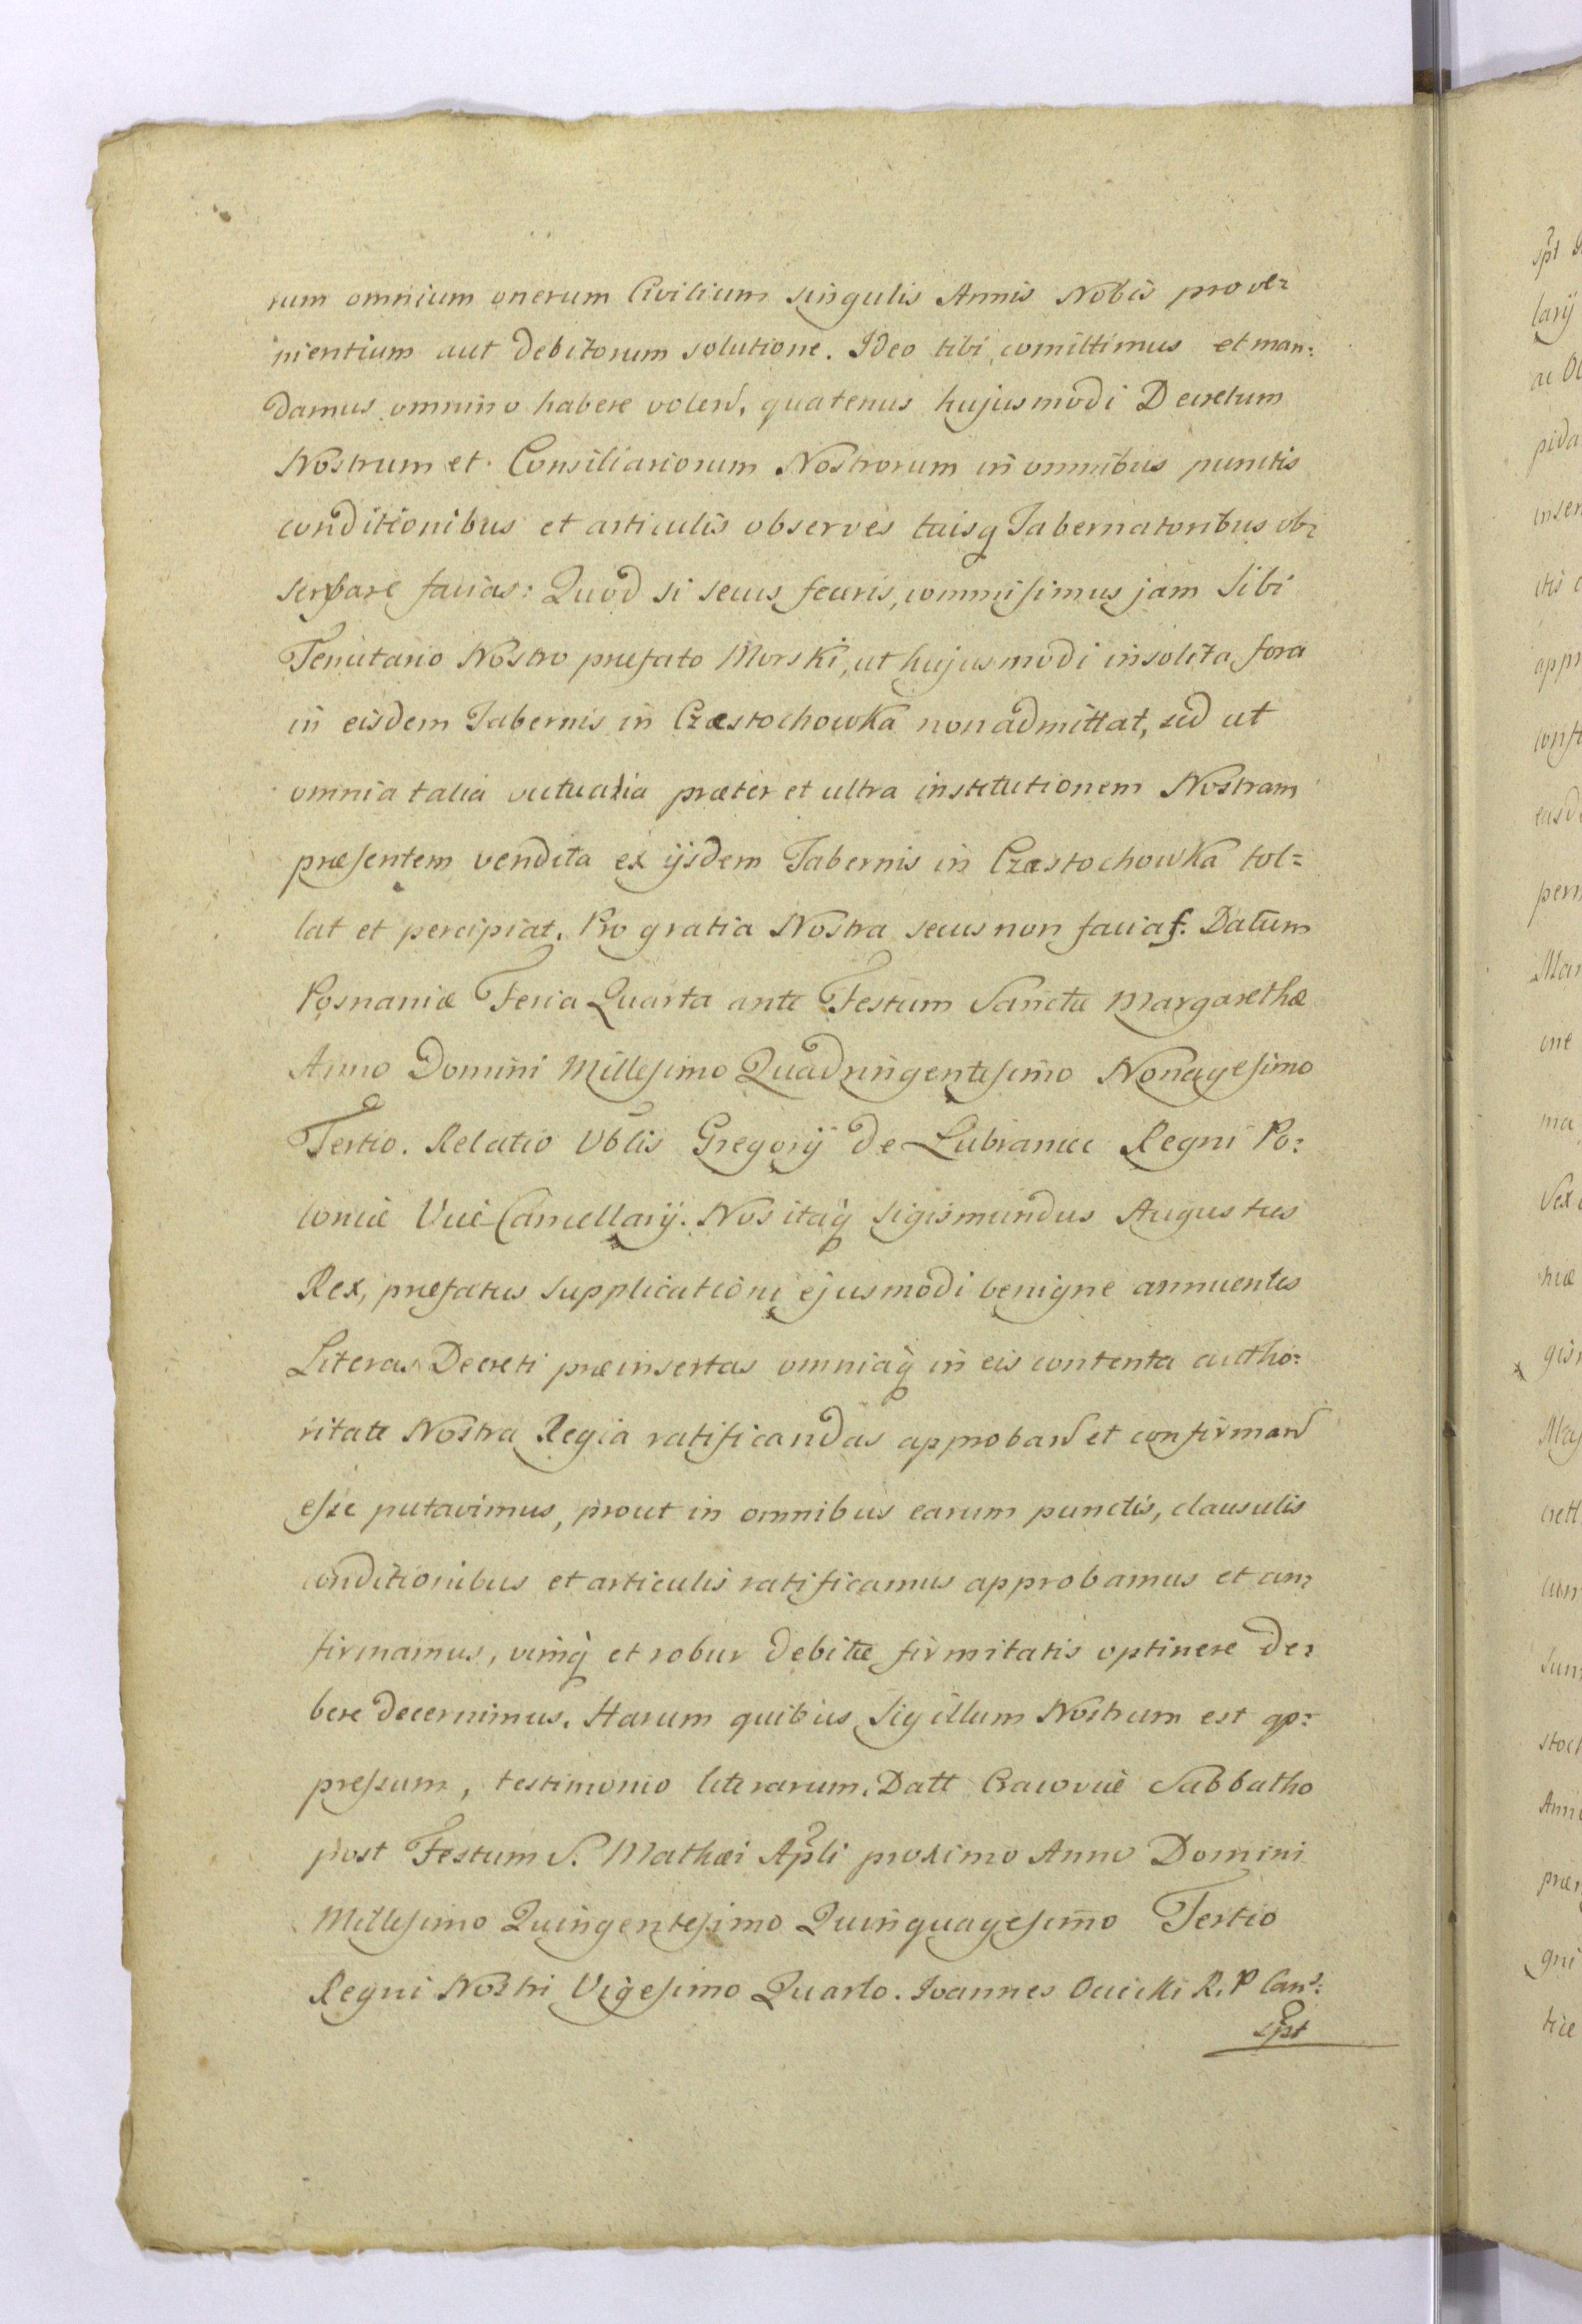 rum omnium onerum Civilium singulis Annis Nobis prove=
nientium aut debitorum solutione. Ideo tibi comittimus et man:
damus omnino habere volen, quatenus hujusmodi Decretum
Nostrum et Consiliariorum Nostrorum in omnibus punctis
conditionibus et articulis observes tuisq Tabernatoribus ob=
servare facias: Quod si secus feceris, commisimus jam Tibi
Tenutario Nostro præfato Morski, ut hujusmodi insolita fora
in eisdem Tabernis in Częstochowka non admittat, sed ut
omnia talia victualia præter et ultra institutionem Nostram
præsentem vendita ex ijsdem Tabernis in Cząstochowka tol=
lat et percipiat. Pro gratia Nostra secus non facias. Datum
Posnaniæ Feria Quarta ante Festum Sanctæ Margarethæ
Anno Domini Millesimo Quadringentesimo Nonagesimo
Tertio. Relatio Vblis Gregorij de Lubraniec Regni Po:
loniæ Vice Cancellarij. Nos itaq Sigismundus Augustus
Rex, præfatus supplicationi ejusmodi benigne annuentes
Literas Decreti præinsertas omniaq in eis contenta autho:
ritate Nostra Regia ratificandas approban et confirman
esse putavimus, prout in omnibus earum punctis, clausulis
conditionibus et articulis ratificamus approbamus et con=
firmamus, vimq et robur debitæ firmitatis optinere de=
bere decernimus. Harum quibus Sigillum Nostrum est ap:
pressum, testimonio literarum. Datt Cracoviæ Sabbatho
post Festum S. Mathæi Apli proximo Anno Domini
Millesimo Quingentesimo Quinquagesimo Tertio
Regni Nostri Vigesimo Quarto. Joannes Ocieski R. P Can:
Spt